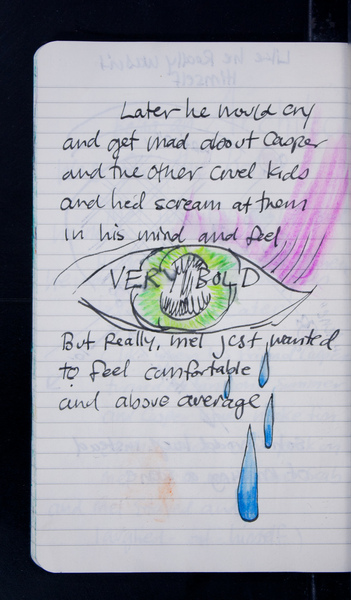 Later he would cry
and get mad about Casper
and the other cruel kids
and hed scream at them
in his mind and feel
VERY BOLD
But Really, mel just wanted
to feel comfortable
and above average